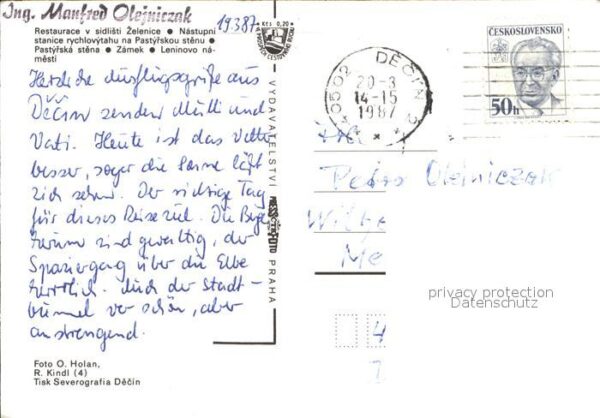 Ing. Manfred Olejniczak
19.3.87
Kčs 0,20
Restaurace v sídlišti Želenice • Nástupní
stanice rychlovýtahu na Pastýřskou stěnu •
Pastýřská stěna • Zámek • Leninovo ná-
městí
Herzliche Ausflugsgrüße aus
Děčín senden Mutti und
Vati. Heute ist das Wetter
besser, sogar die Sonne läßt
sich sehen. Der richtige Tag
für dieses Reiseziel. Die Berge
herum sind gewaltig, der
Spaziergang über die Elbe
herrlich. Auch der Stadt-
bummel war schön, aber
anstrengend.
Foto O. Holan,
R. Kindl (4)
Tisk Severografia Děčín
VYDAVATELSTVÍ PRESSFOTO PRAHA
405 02 DĚČÍN 2
20-3
14-15
1987
ČESKOSLOVENSKO
50h
Olejniczak
privacy protection
Datenschutz